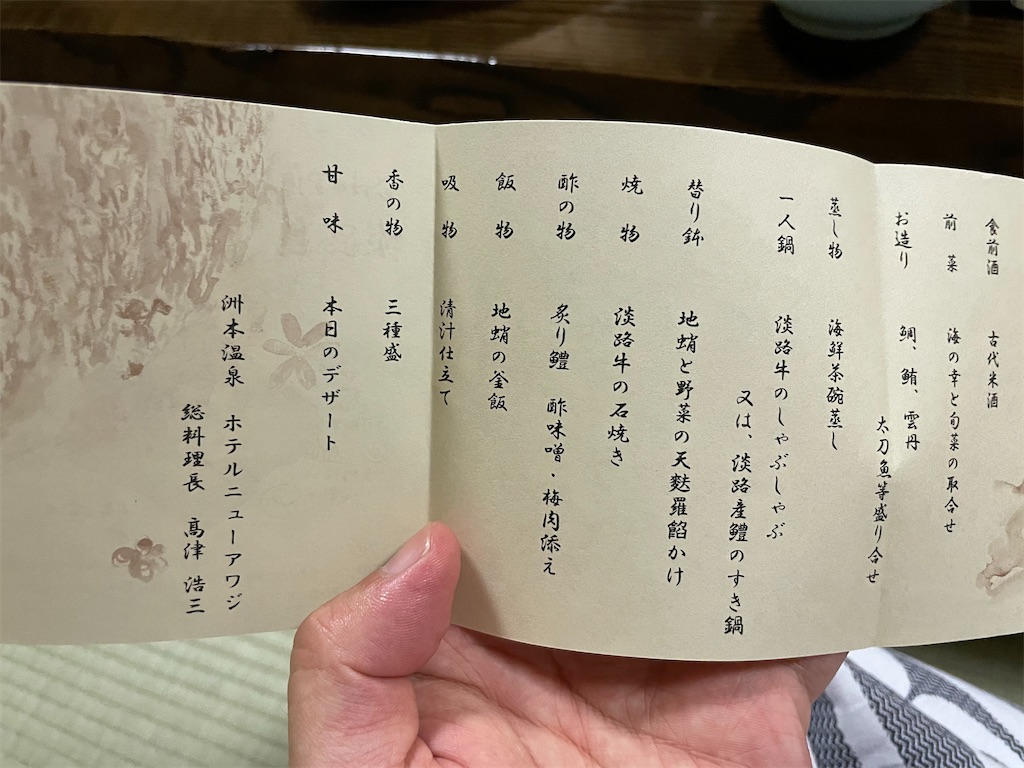 食前酒　古代米酒
前菜　海の幸と旬菜の取合せ
お造り　鯛、鮪、雲丹
太刀魚等盛り合せ
蒸し物　海鮮茶碗蒸し
一人鍋　淡路牛のしゃぶしゃぶ
又は、淡路産鱧のすき鍋
替り鉢　地蛸と野菜の天麩羅餡かけ
焼物　淡路牛の石焼き
酢の物　炙り鱧　酢味噌・梅肉添え
飯物　地蛸の釜飯
吸物　清汁仕立て
香の物　三種盛
甘味　本日のデザート
洲本温泉　ホテルニューアワジ
総料理長　高津　浩三